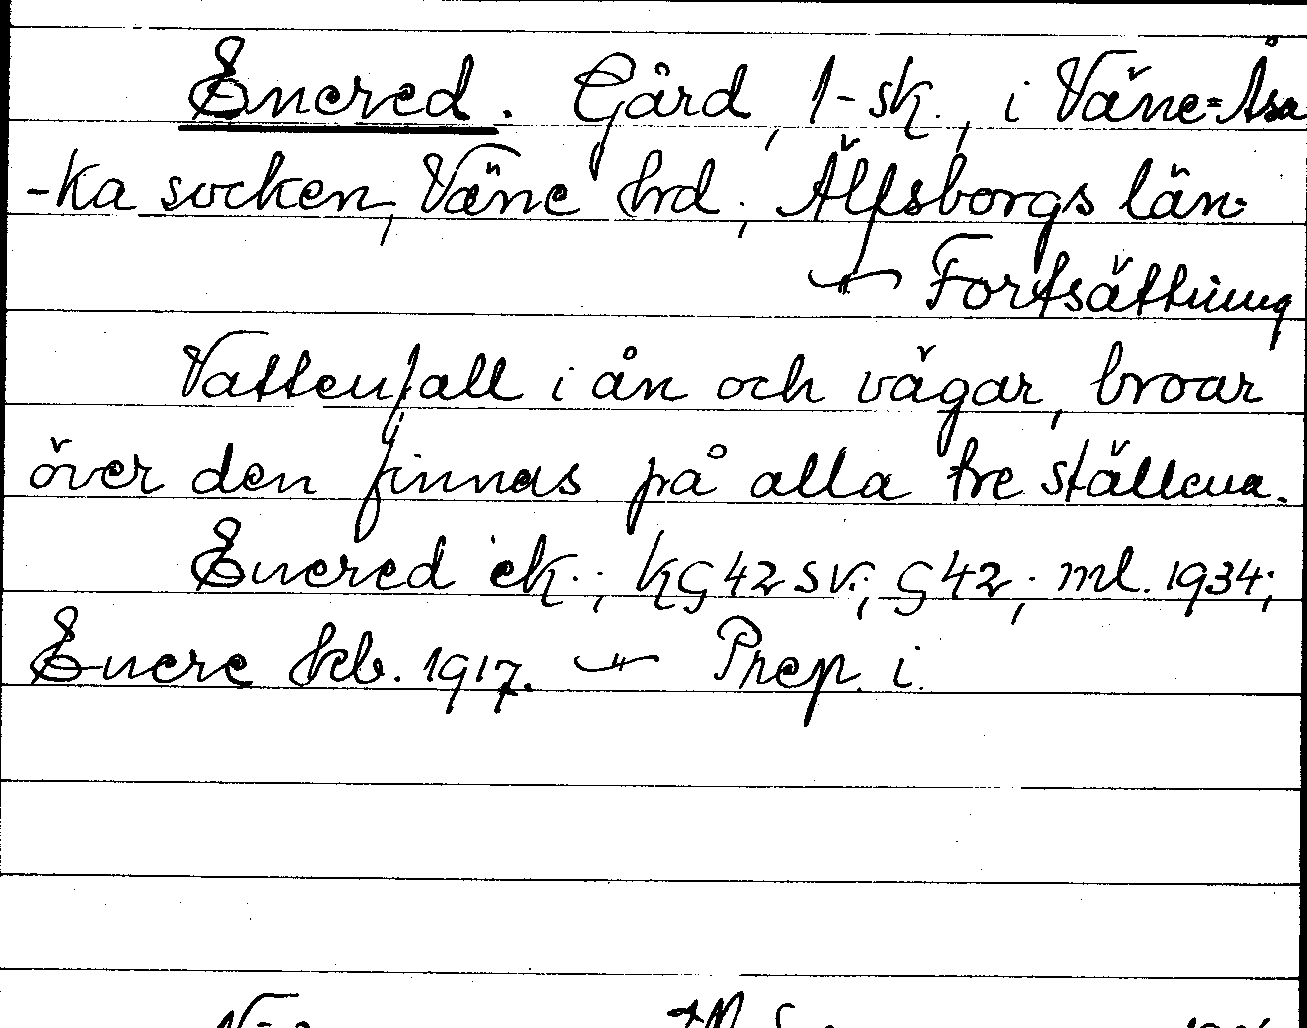 Enered. Gård, 1-sk., i Väne=Åsa
-ka socken, Väne hrd., Älfsborgs län.
Fortsättning
Vattenfall i ån och vägar, broar
över den finnas på alla tre ställena.
Enered ek.; KG42SV.; G42; ml. 1934;
Enere kb. 1917. — Prep. i.